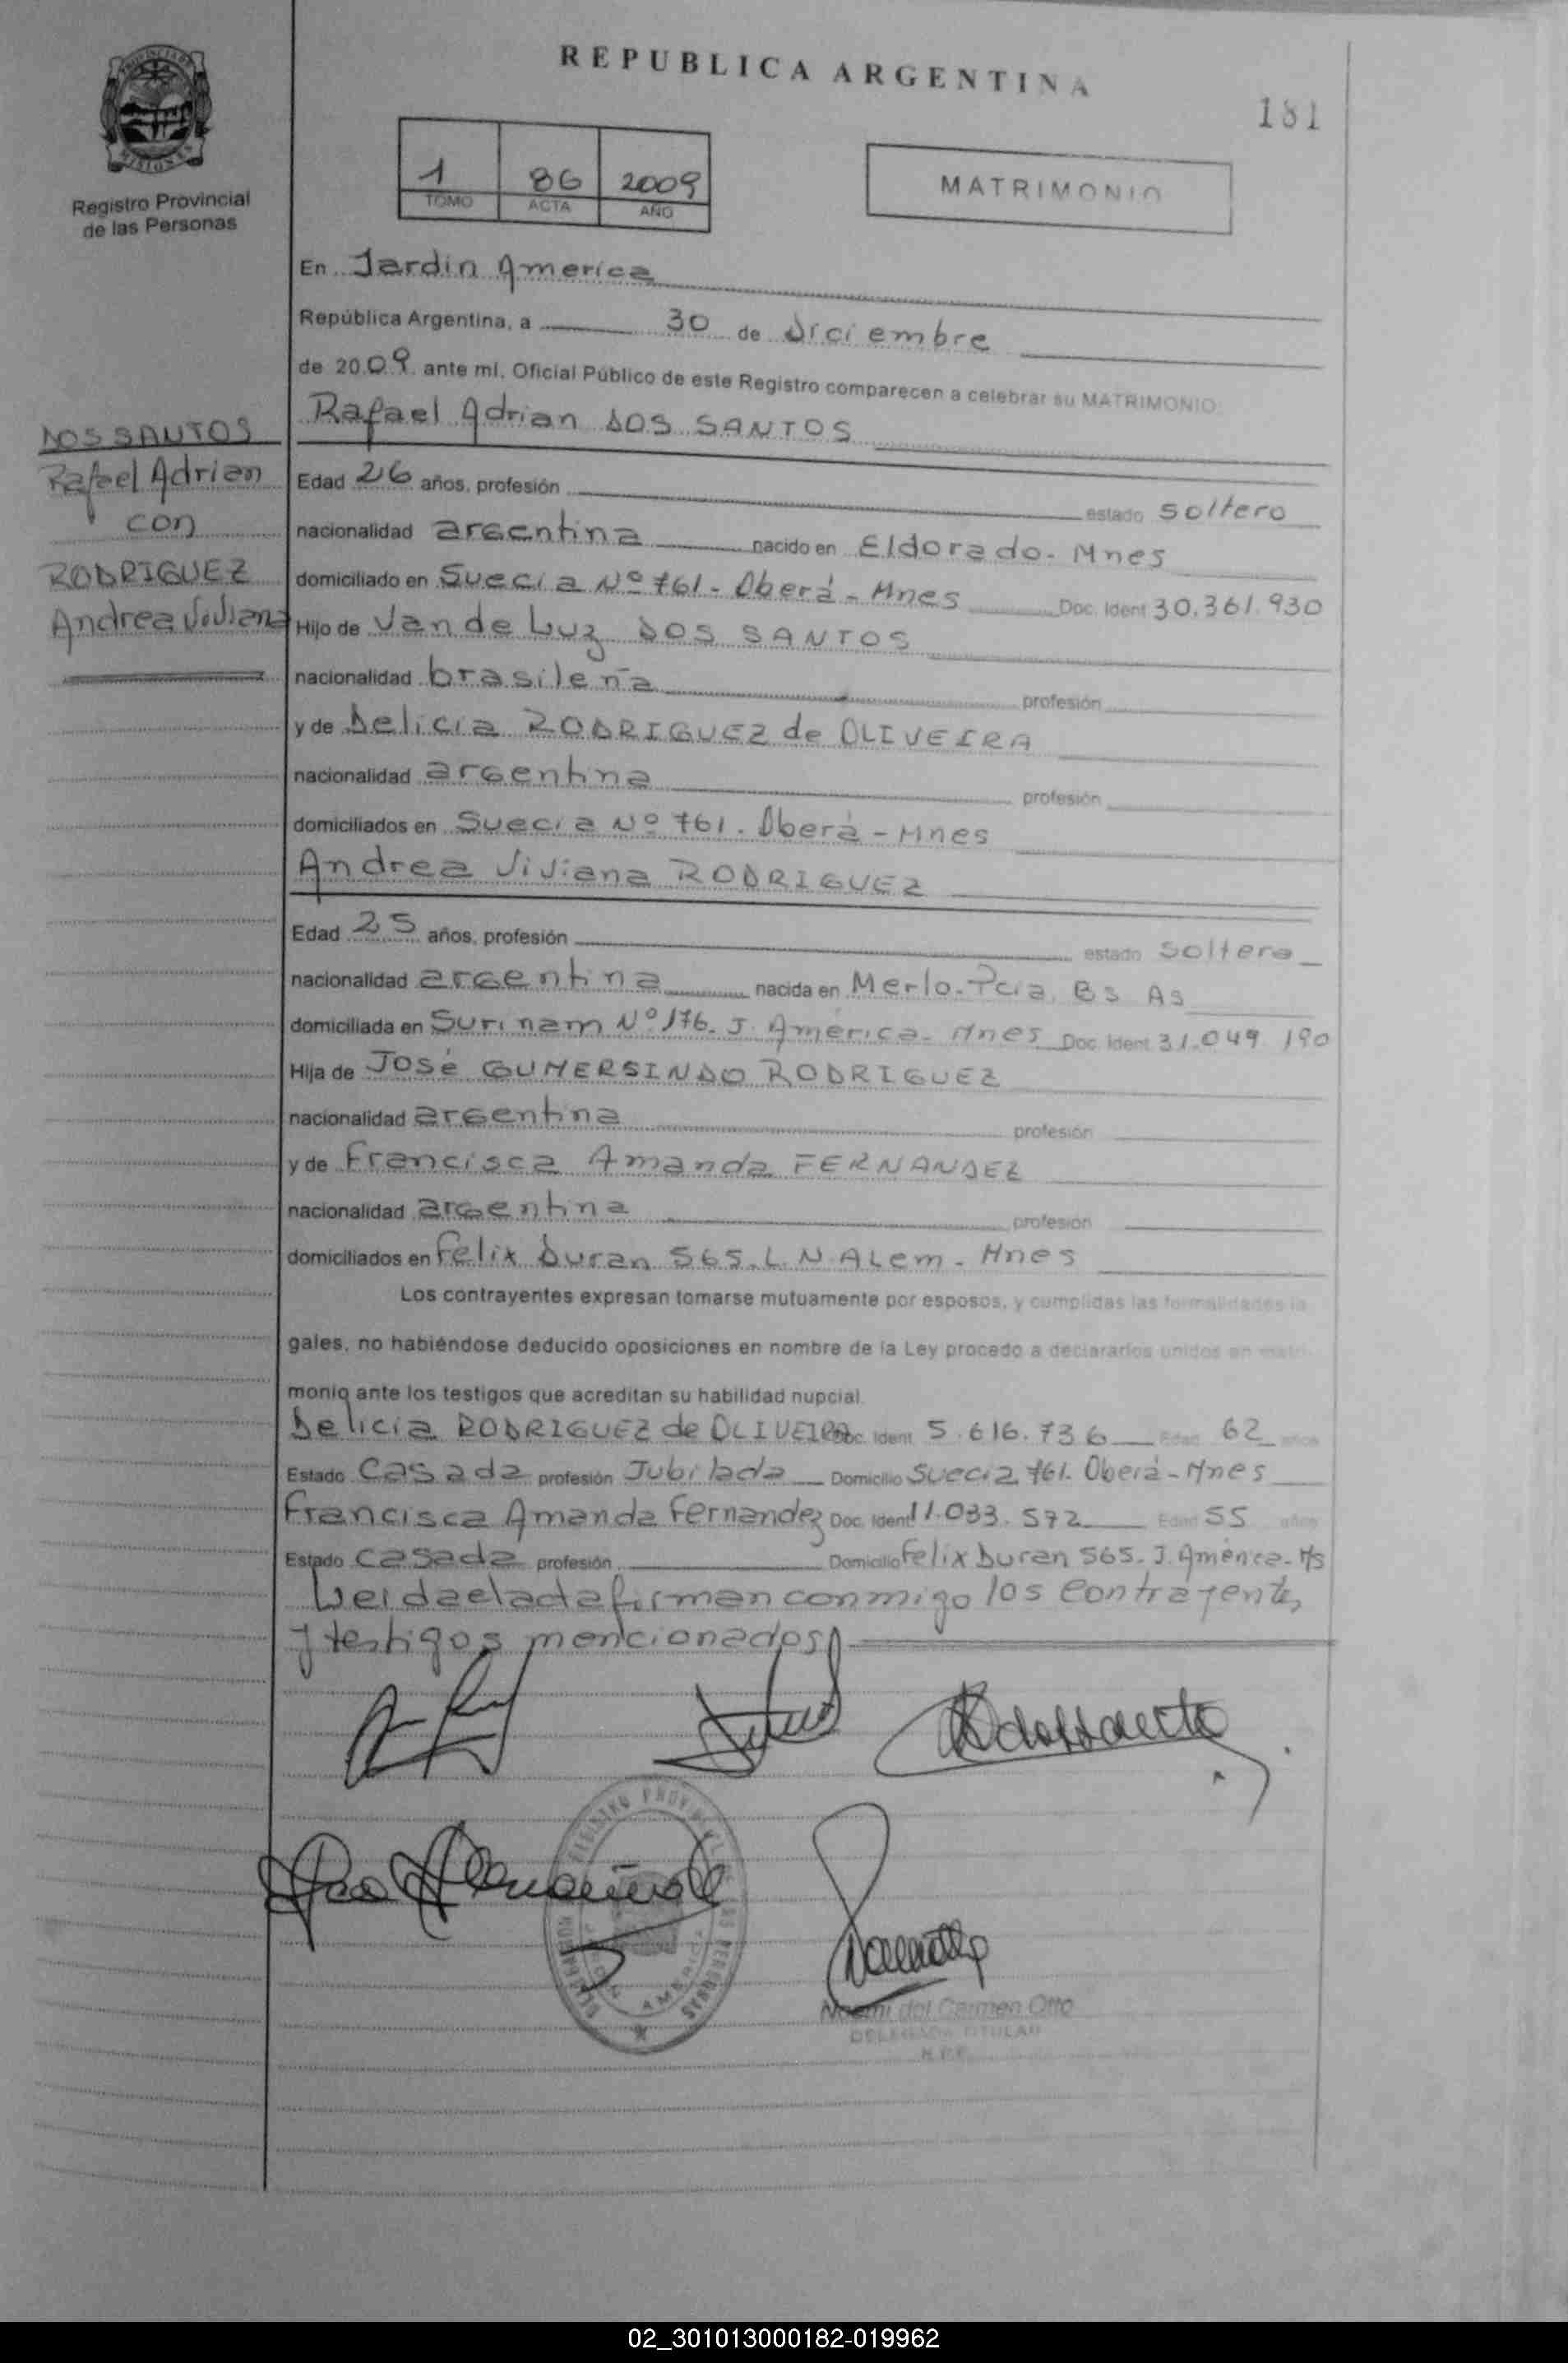 REPUBLICA ARGENTINA
181
Registro Provincial
de las Personas
1 86 2009
TOMO ACTA AÑO
MATRIMONIO
En Jardin America
República Argentina, a 30 de diciembre
de 2009 ante mí, Oficial Público de este Registro comparecen a celebrar su MATRIMONIO:
Rafael Adrian DOS SANTOS
DOS SANTOS
Rafael Adrian
con
RODRIGUEZ
Andrea Viviana
Edad 26 años, profesión estado soltero
nacionalidad argentina nacido en Eldorado - Mnes
domiciliado en Suecia Nº 761 - Oberá - Mnes Doc. Ident 30.361.930
Hijo de Van de Luz DOS SANTOS
nacionalidad brasileña profesión
y de Delicia RODRIGUEZ de OLIVEIRA
nacionalidad argentina profesión
domiciliados en Suecia Nº 761 - Oberá - Mnes
Andrea Viviana RODRIGUEZ
Edad 25 años, profesión estado soltera
nacionalidad argentina nacida en Merlo - Pcia. Bs As
domiciliada en Surinam Nº 176 - J. América - Mnes Doc. Ident 31.049.190
Hija de José GUMERSINDO RODRIGUEZ
nacionalidad argentina profesión
y de Francisca Amanda FERNANDEZ
nacionalidad argentina profesión
domiciliados en Felix Duran 565. L. N. ALem - Mnes
Los contrayentes expresan tomarse mutuamente por esposos, y cumplidas las formalidades le
gales, no habiéndose deducido oposiciones en nombre de la Ley procedo a declararlos unidos en matri-
monio ante los testigos que acreditan su habilidad nupcial.
Delicia RODRIGUEZ de OLIVEIRA Doc. Ident 5.616.736 Edad 62 años
Estado Casada profesión Jubilada Domicilio Suecia 761. Oberá - Mnes
Francisca Amanda Fernandez Doc. Ident 11.033.572 Edad 55 años
Estado casada profesión Domicilio Felix Duran 565 - J. América - Ms
Leida el acta firman conmigo los contrayentes
y testigos mencionados
REGISTRO PROVINCIAL DE LAS PERSONAS
AMERICA
Noemi del Carmen Otto
DELEGADA TITULAR
R.P.P.
02_301013000182-019962